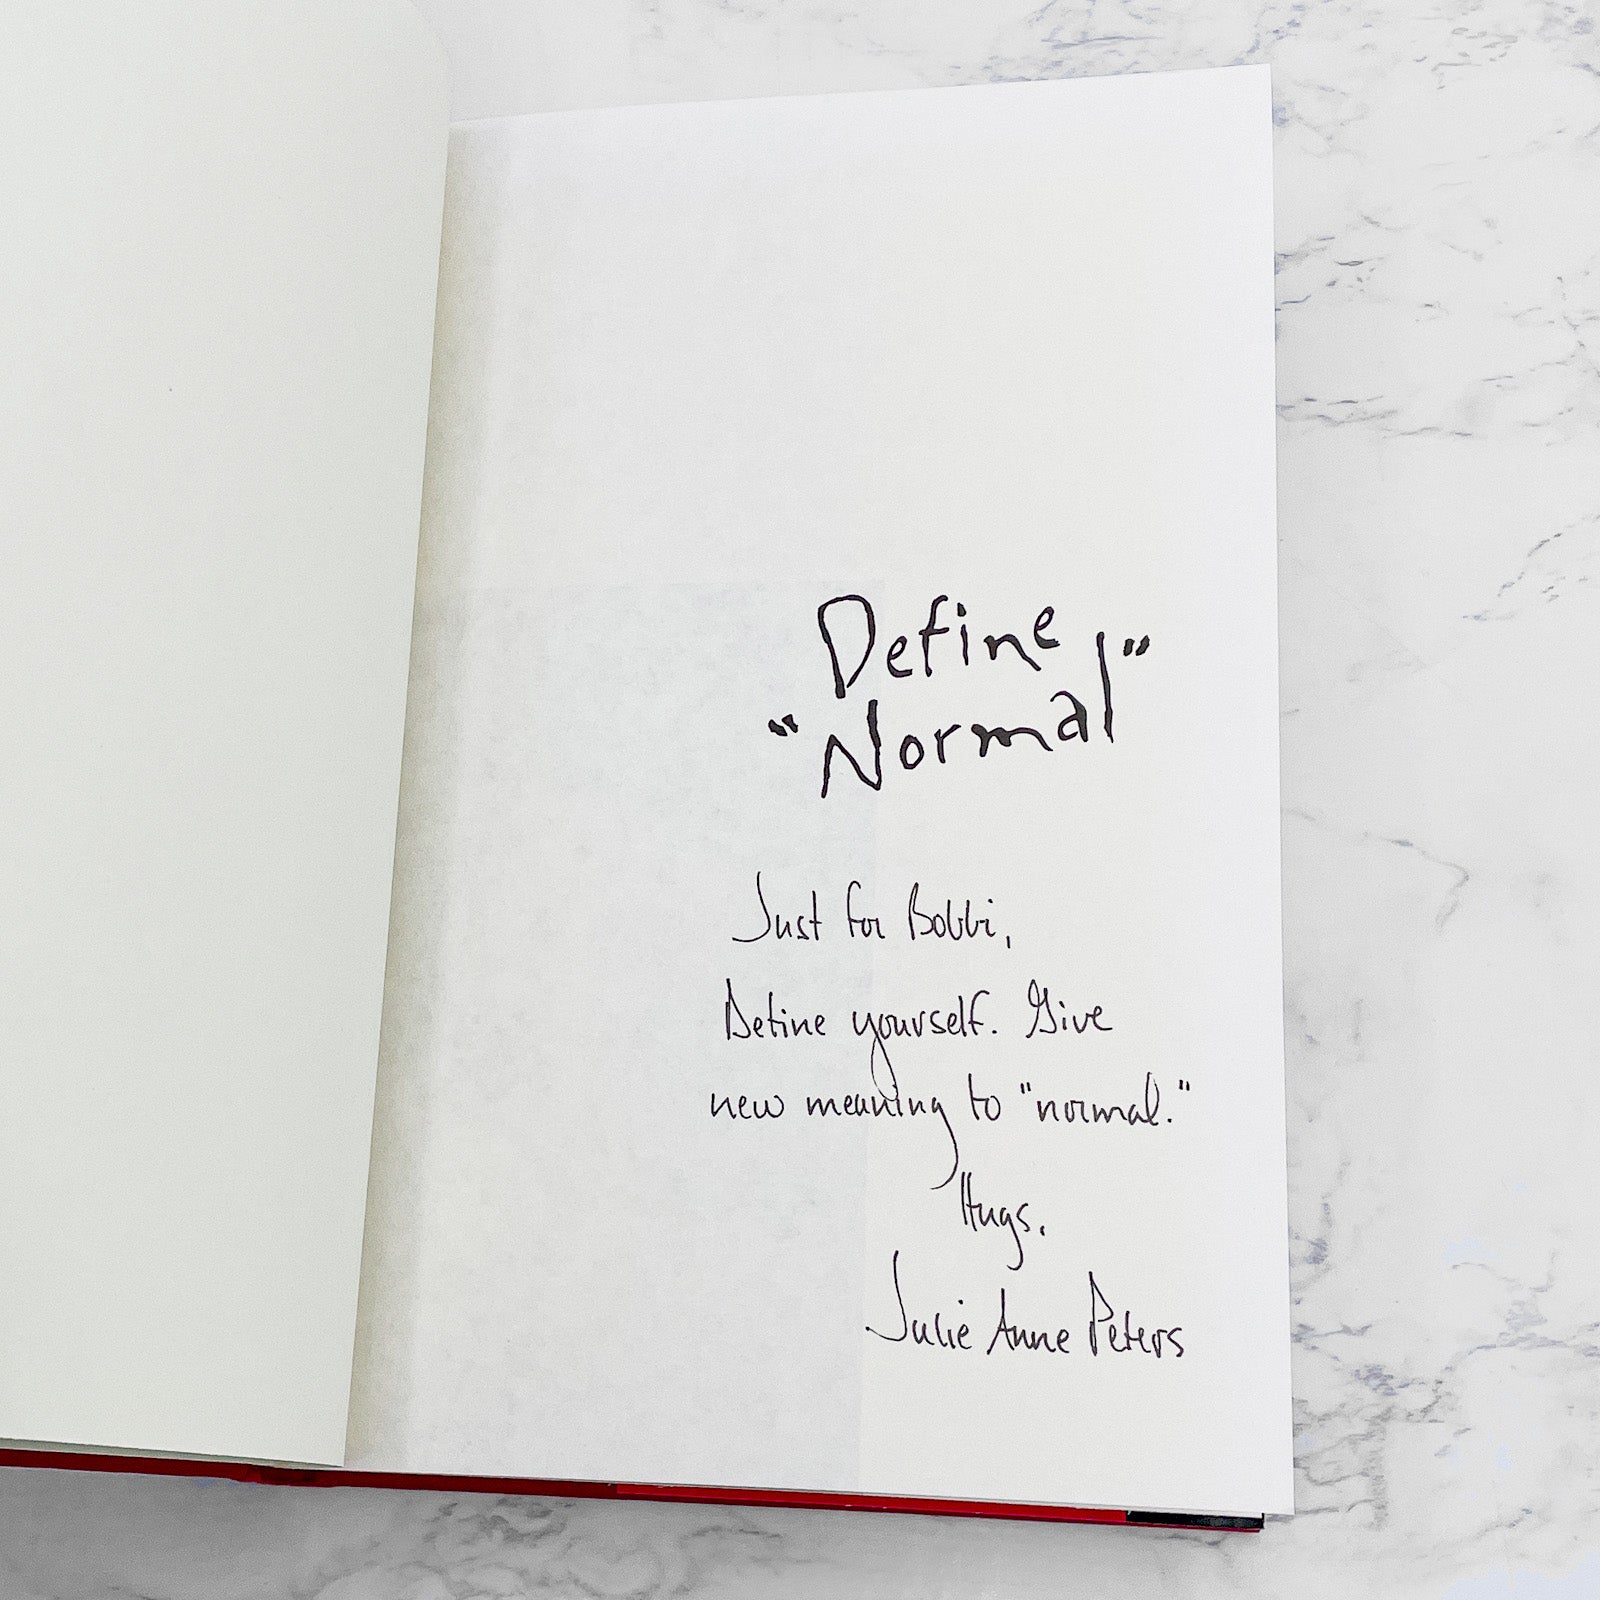 Define
"Normal"
Just for Bobbi,
Define yourself. Give
new meaning to "normal."
Hugs,
Julie Anne Peters